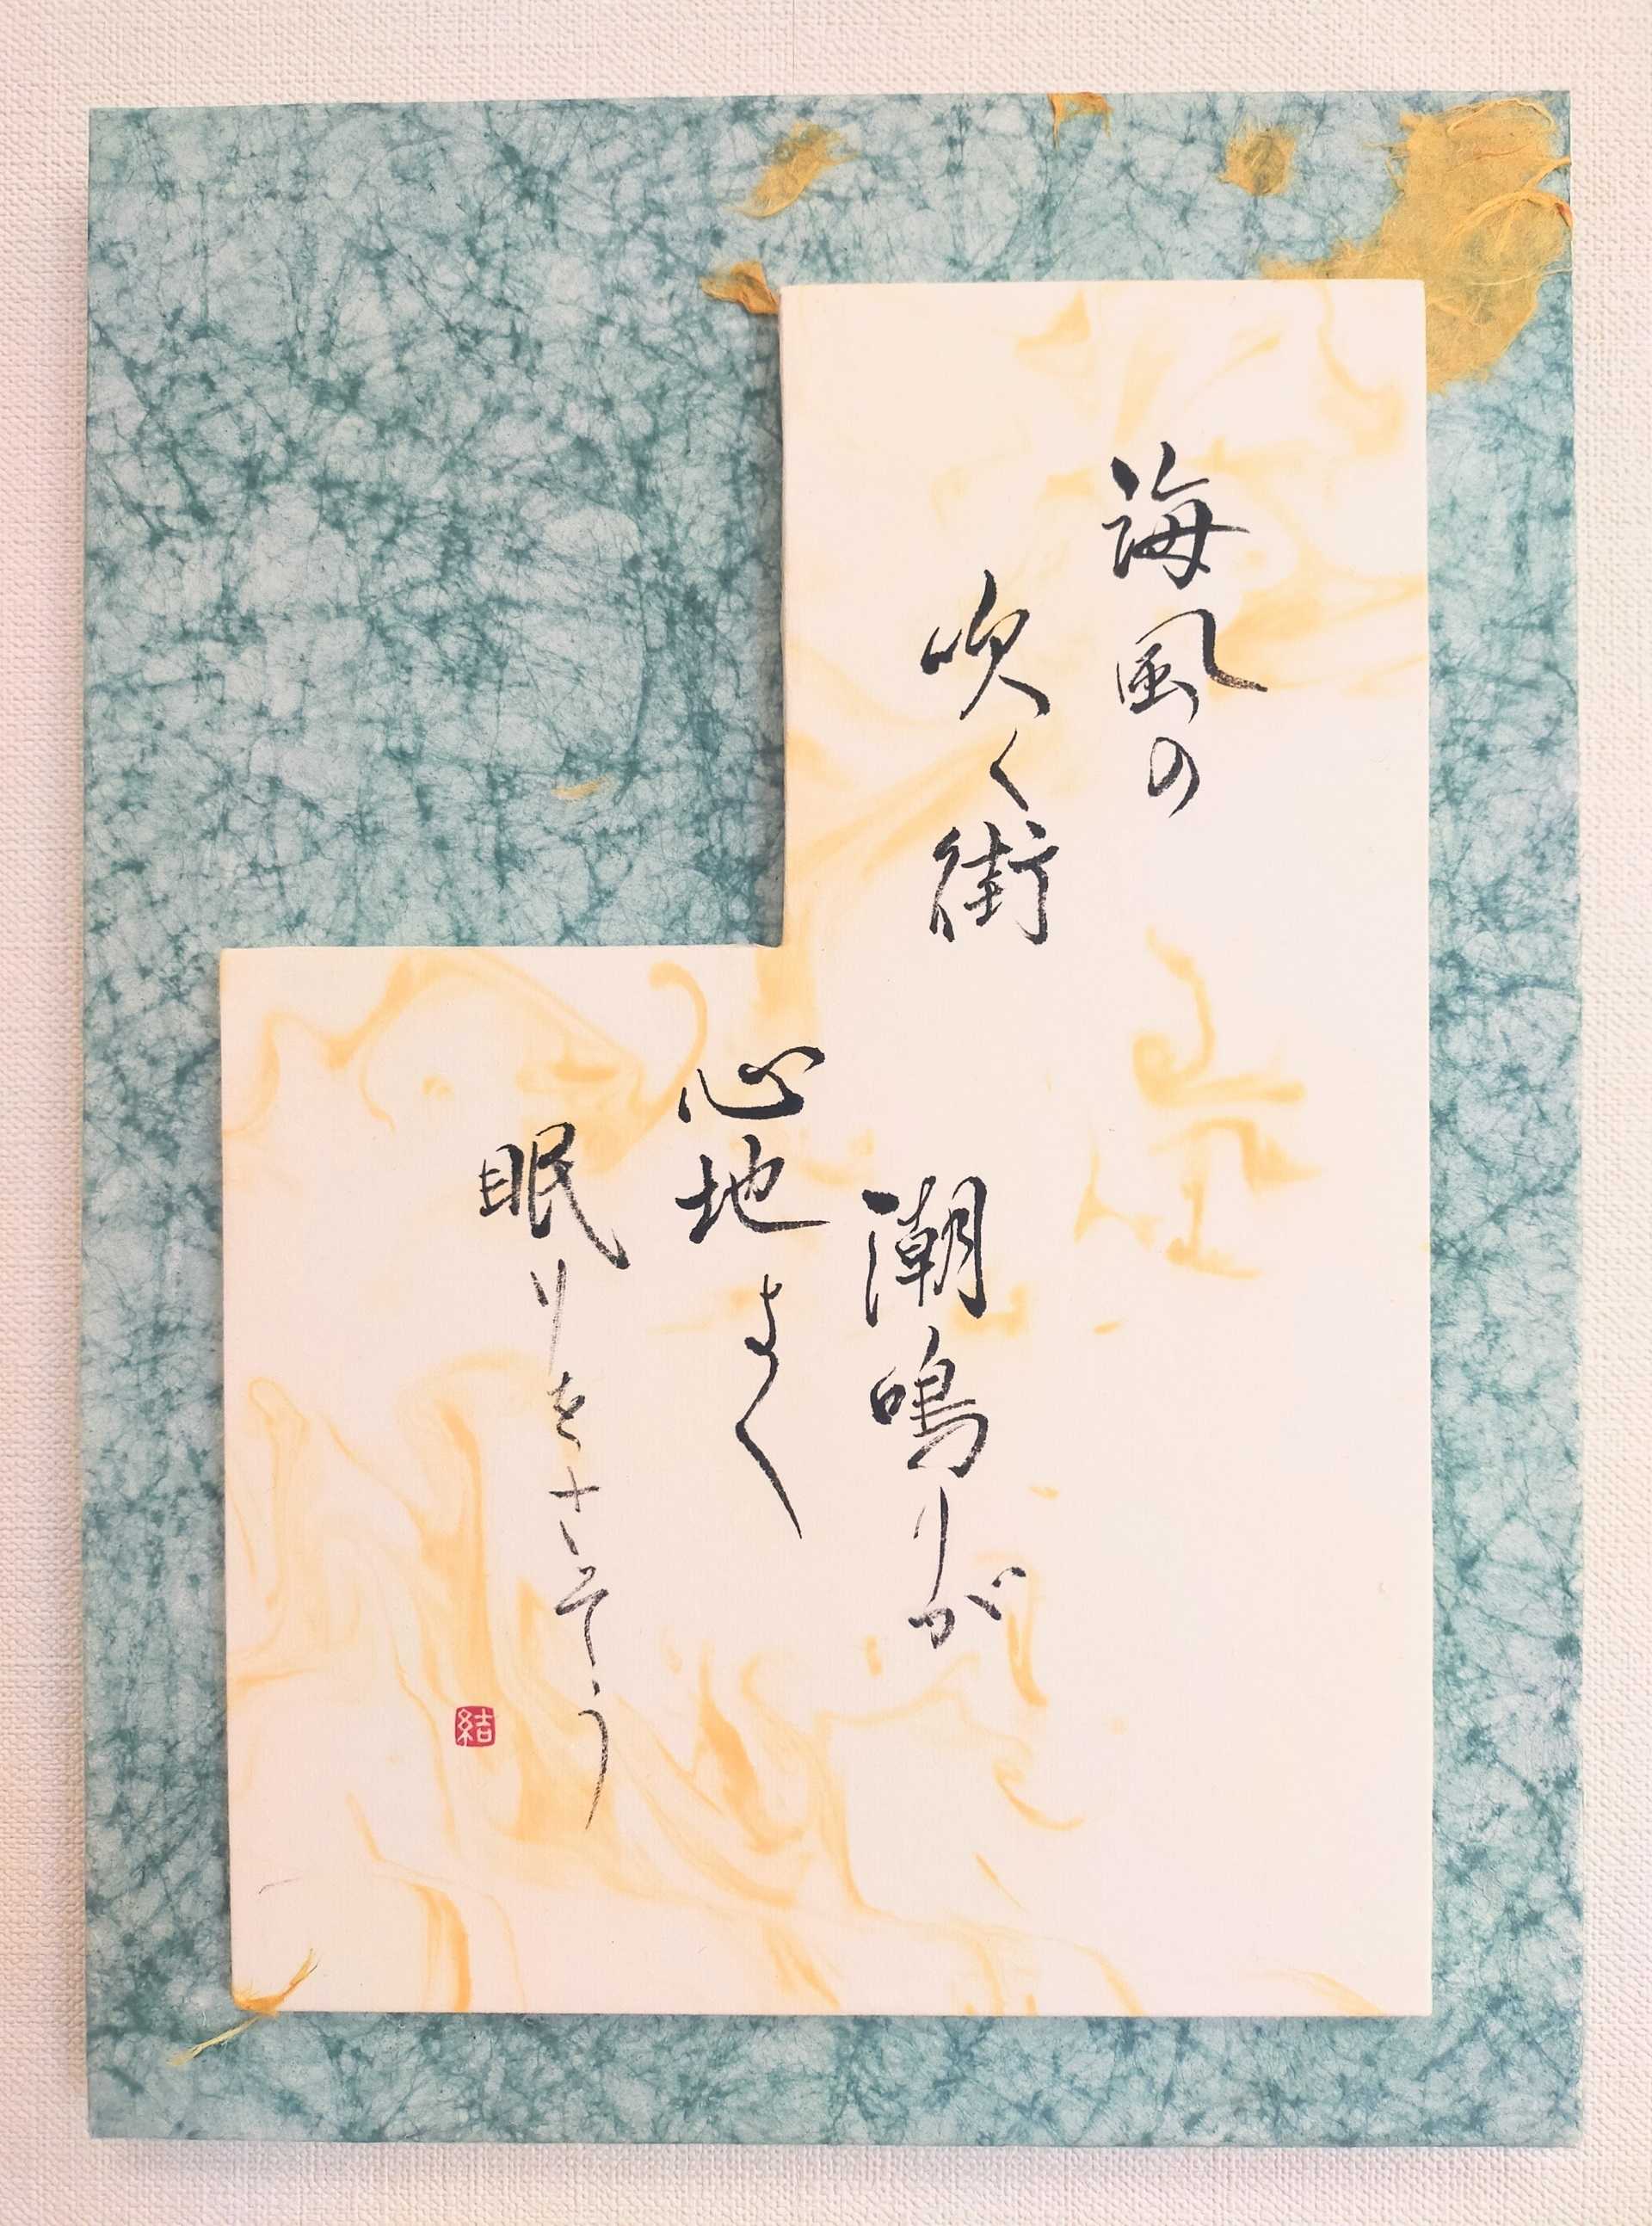 海風の
吹く街
潮鳴りが
心地よく
眠りをさそう
結